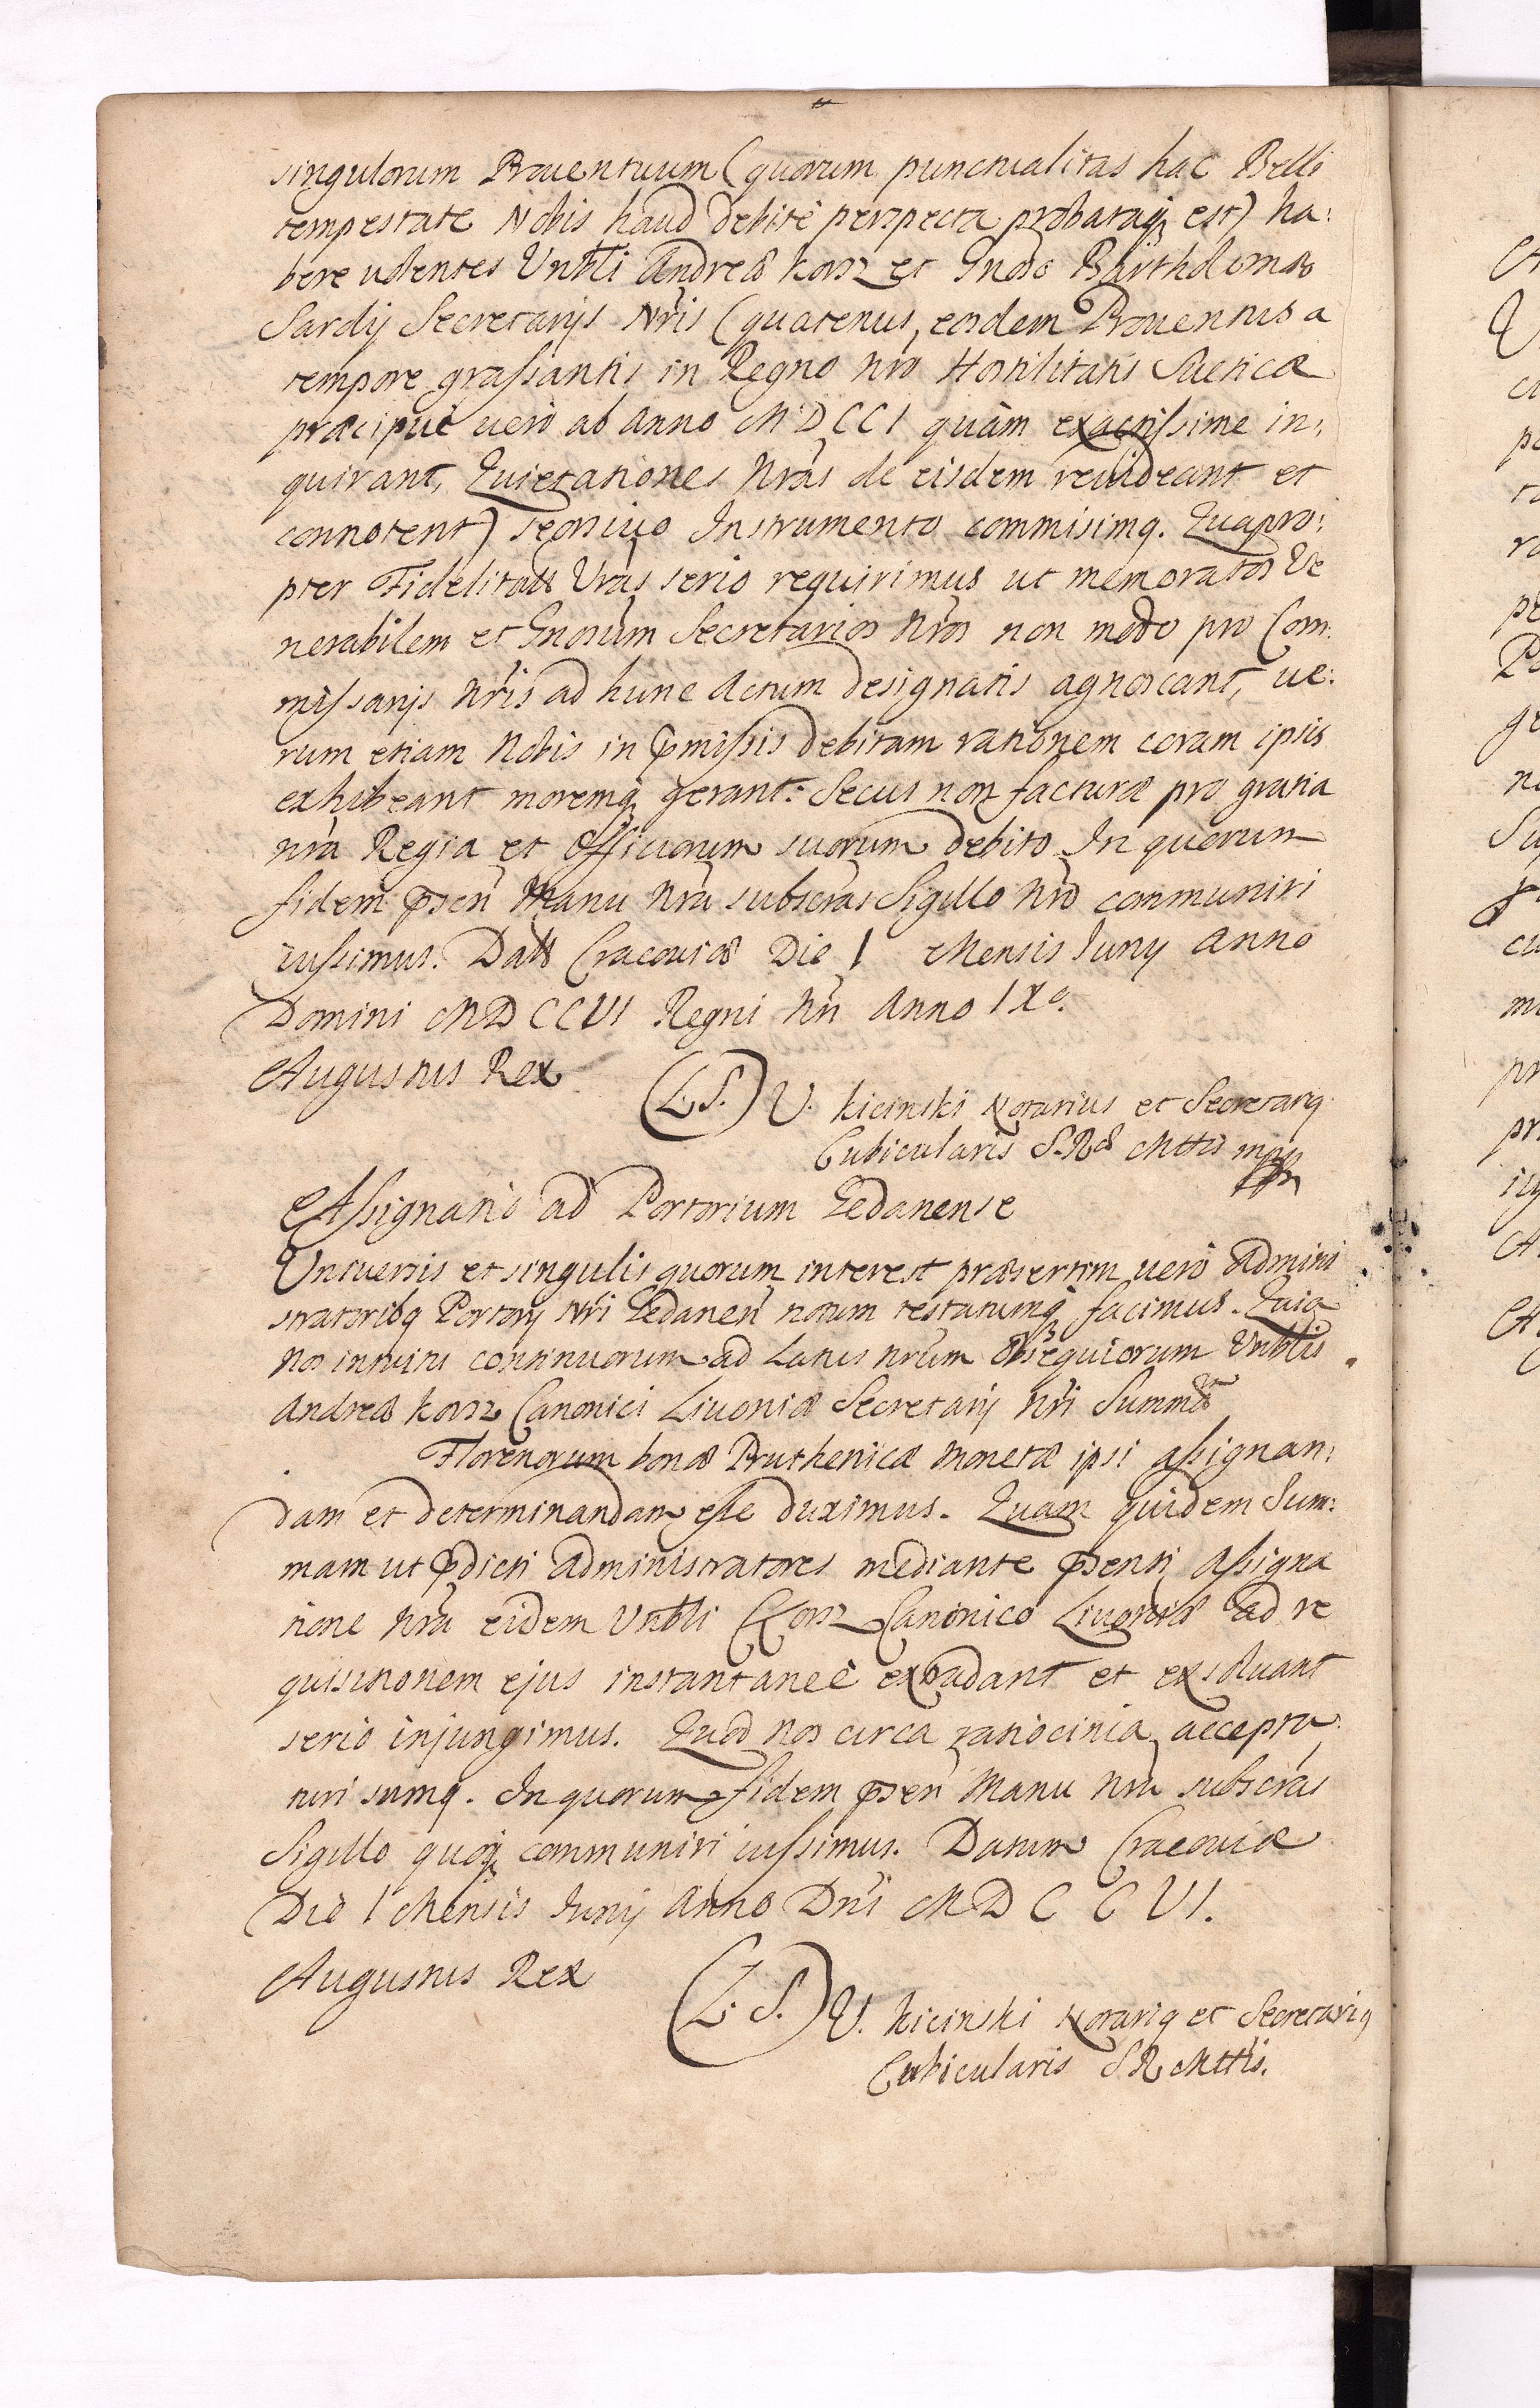 singulorum Prouentuum (quorum punctualitas hac Belli
tempestate Nobis haud debitè perspecta probataq₃ est) ha:
bere uolentes Vnbli Andreæ Korsz et Gnoso Bartholomæo
Sardij Secretarijs Nris (quatenus, eosdem Prouentus a
tempore grassantis in Regno nro Hostilitatis Sueticæ
præcipuè uerò ab Anno MDCCI quàm exactissime in:
quirant, Quietationes Nras de eisdem reuideant et
connotent) seorsiuo Instrumento commisimq. Quapro:
pter Fidelitates Vras serio requirimus ut memoratos Ve
nerabilem et Gnosum Secretarios Nros non modo pro Com:
missarijs Nris ad hunc Actum designatis agnoscant, ue:
rum etiam Nobis in pmissis debitam rationem coram ipsis
exhibeant moremq₃ gerant. Secus non facturæ pro gratia
nra Regia et Officiorum suorum debito In quorum
fidem psen Manu Nra subscras Sigillo Nro communiri
iussimus. Datt Cracouiæ Die 1 Mensis Junij Anno
Domini MDCCVI Regni Nri Anno IXo.
Augustus Rex
(L.S.) V. Kicinski Notarius et Secretarq
Cubicularis S. Ræ Mttis mpp
Assignatio ad Portorium Gedanense
Vniuersis et singulis quorum interest præsertim uerò Admini
stratoribq Portorij Nri Gedanen notum testatumq₃ facimus. Quia
Nos intuitu continuorum ad Latus nrum Obsequiorum Vnblis
Andreæ Korsz Canonici Liuoniæ Secretarij Nri Summã
Florenorum bonæ Pruthenicæ Monetæ ipsi assignan:
dam et determinandam esse duximus. Quam quidem Sum:
mam ut pdicti Administratores mediante psenti Assigna
tione Nra eidem Vnbli Korsz Canonico Liuoniæ ad re
quisitionem ejus instantaneè extradant et exsoluant
serio injungimus. Quod Nos circa ratiocinia accepta:
turi sumq. In quorum fidem psen Manu Nra subscras
Sigillo quoq₃ communiri iussimus. Datum Cracouiæ
Die 1 Mensis Junij Anno Dni MDCCVI.
Augustus Rex
(L.S.) V. Kicinski Notariq et Secretariq
Cubicularis S R Mttis.